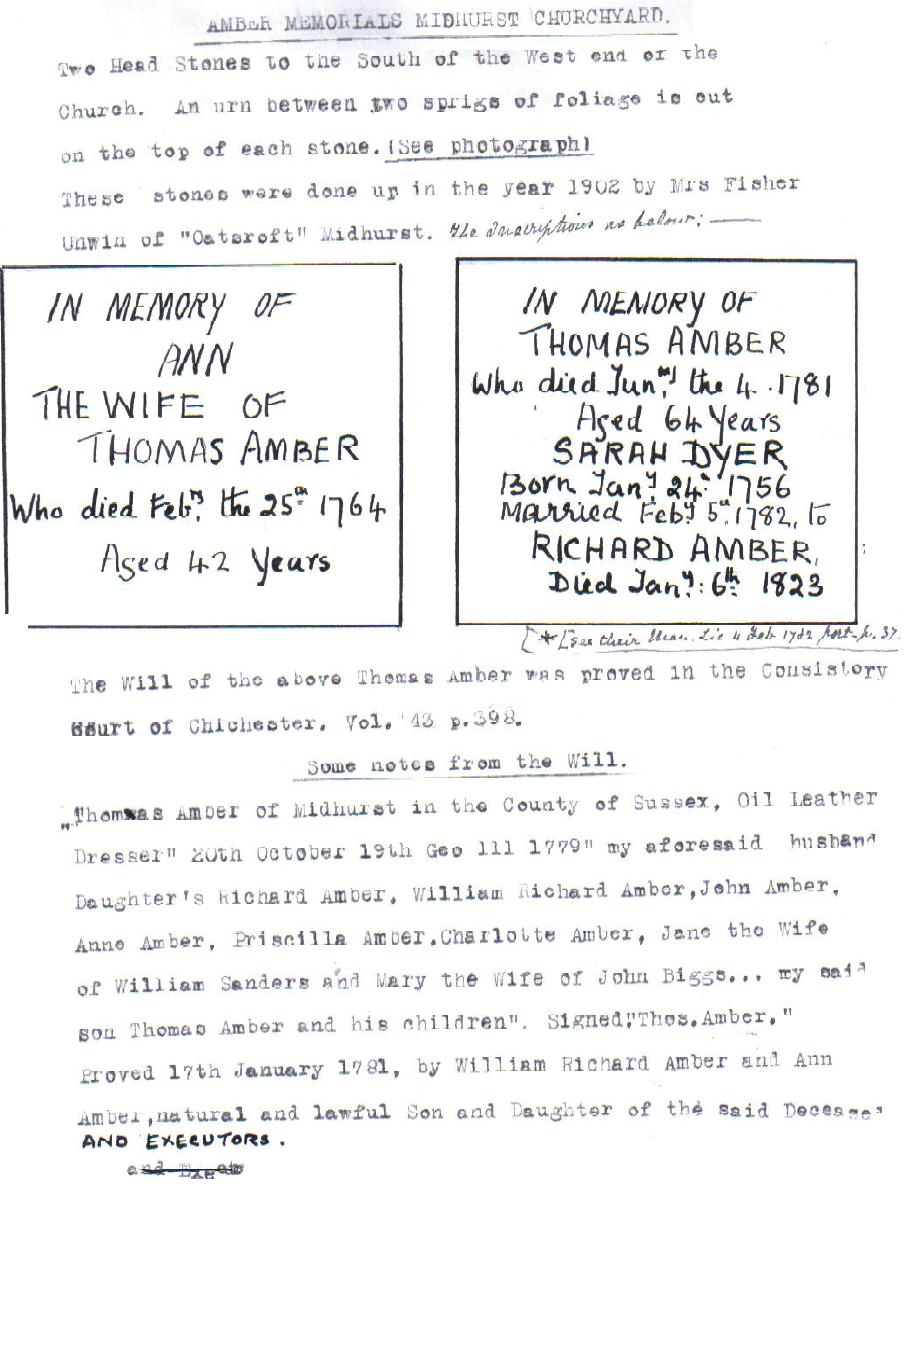 AMBER MEMORIALS MIDHURST CHURCHYARD.
Two Head Stones to the South of the West end of the
Church. An urn between two sprigs of foliage is cut
on the top of each stone. (See photograph)
These stones were done up in the year 1902 by Mrs Fisher
Unwin of "Oatscroft" Midhurst. The Inscriptions as below: —
IN MEMORY OF
ANN
THE WIFE OF
THOMAS AMBER
Who died Febry. the 25th 1764
Aged 42 Years
IN MEMORY OF
THOMAS AMBER
Who died the 4. 1781
Aged 64 Years
SARAH DYER
Born Jany. 24th 1756
Married Feby 5th 1782, to
RICHARD AMBER,
Died Jany: 6th 1823
[* [See their Lic 4 Feb 1782 post p. 37.
The Will of the above Thomas Amber was proved in the Consistory
Court of Chichester. Vol. 43 p.398.
Some notes from the Will.
"Thomas Amber of Midhurst in the County of Sussex, Oil Leather
Dresser" 20th October 19th Geo lll 1779" my aforesaid husband
Daughter's Richard Amber, William Richard Amber, John Amber,
Anne Amber, Priscilla Amber. Charlotte Amber, Jane the Wife
of William Sanders and Mary the Wife of John Biggs... my said
son Thomas Amber and his children". Signed, "Thos. Amber,"
Proved 17th January 1781, by William Richard Amber and Ann
Amber, natural and lawful Son and Daughter of the said
AND EXECUTORS.